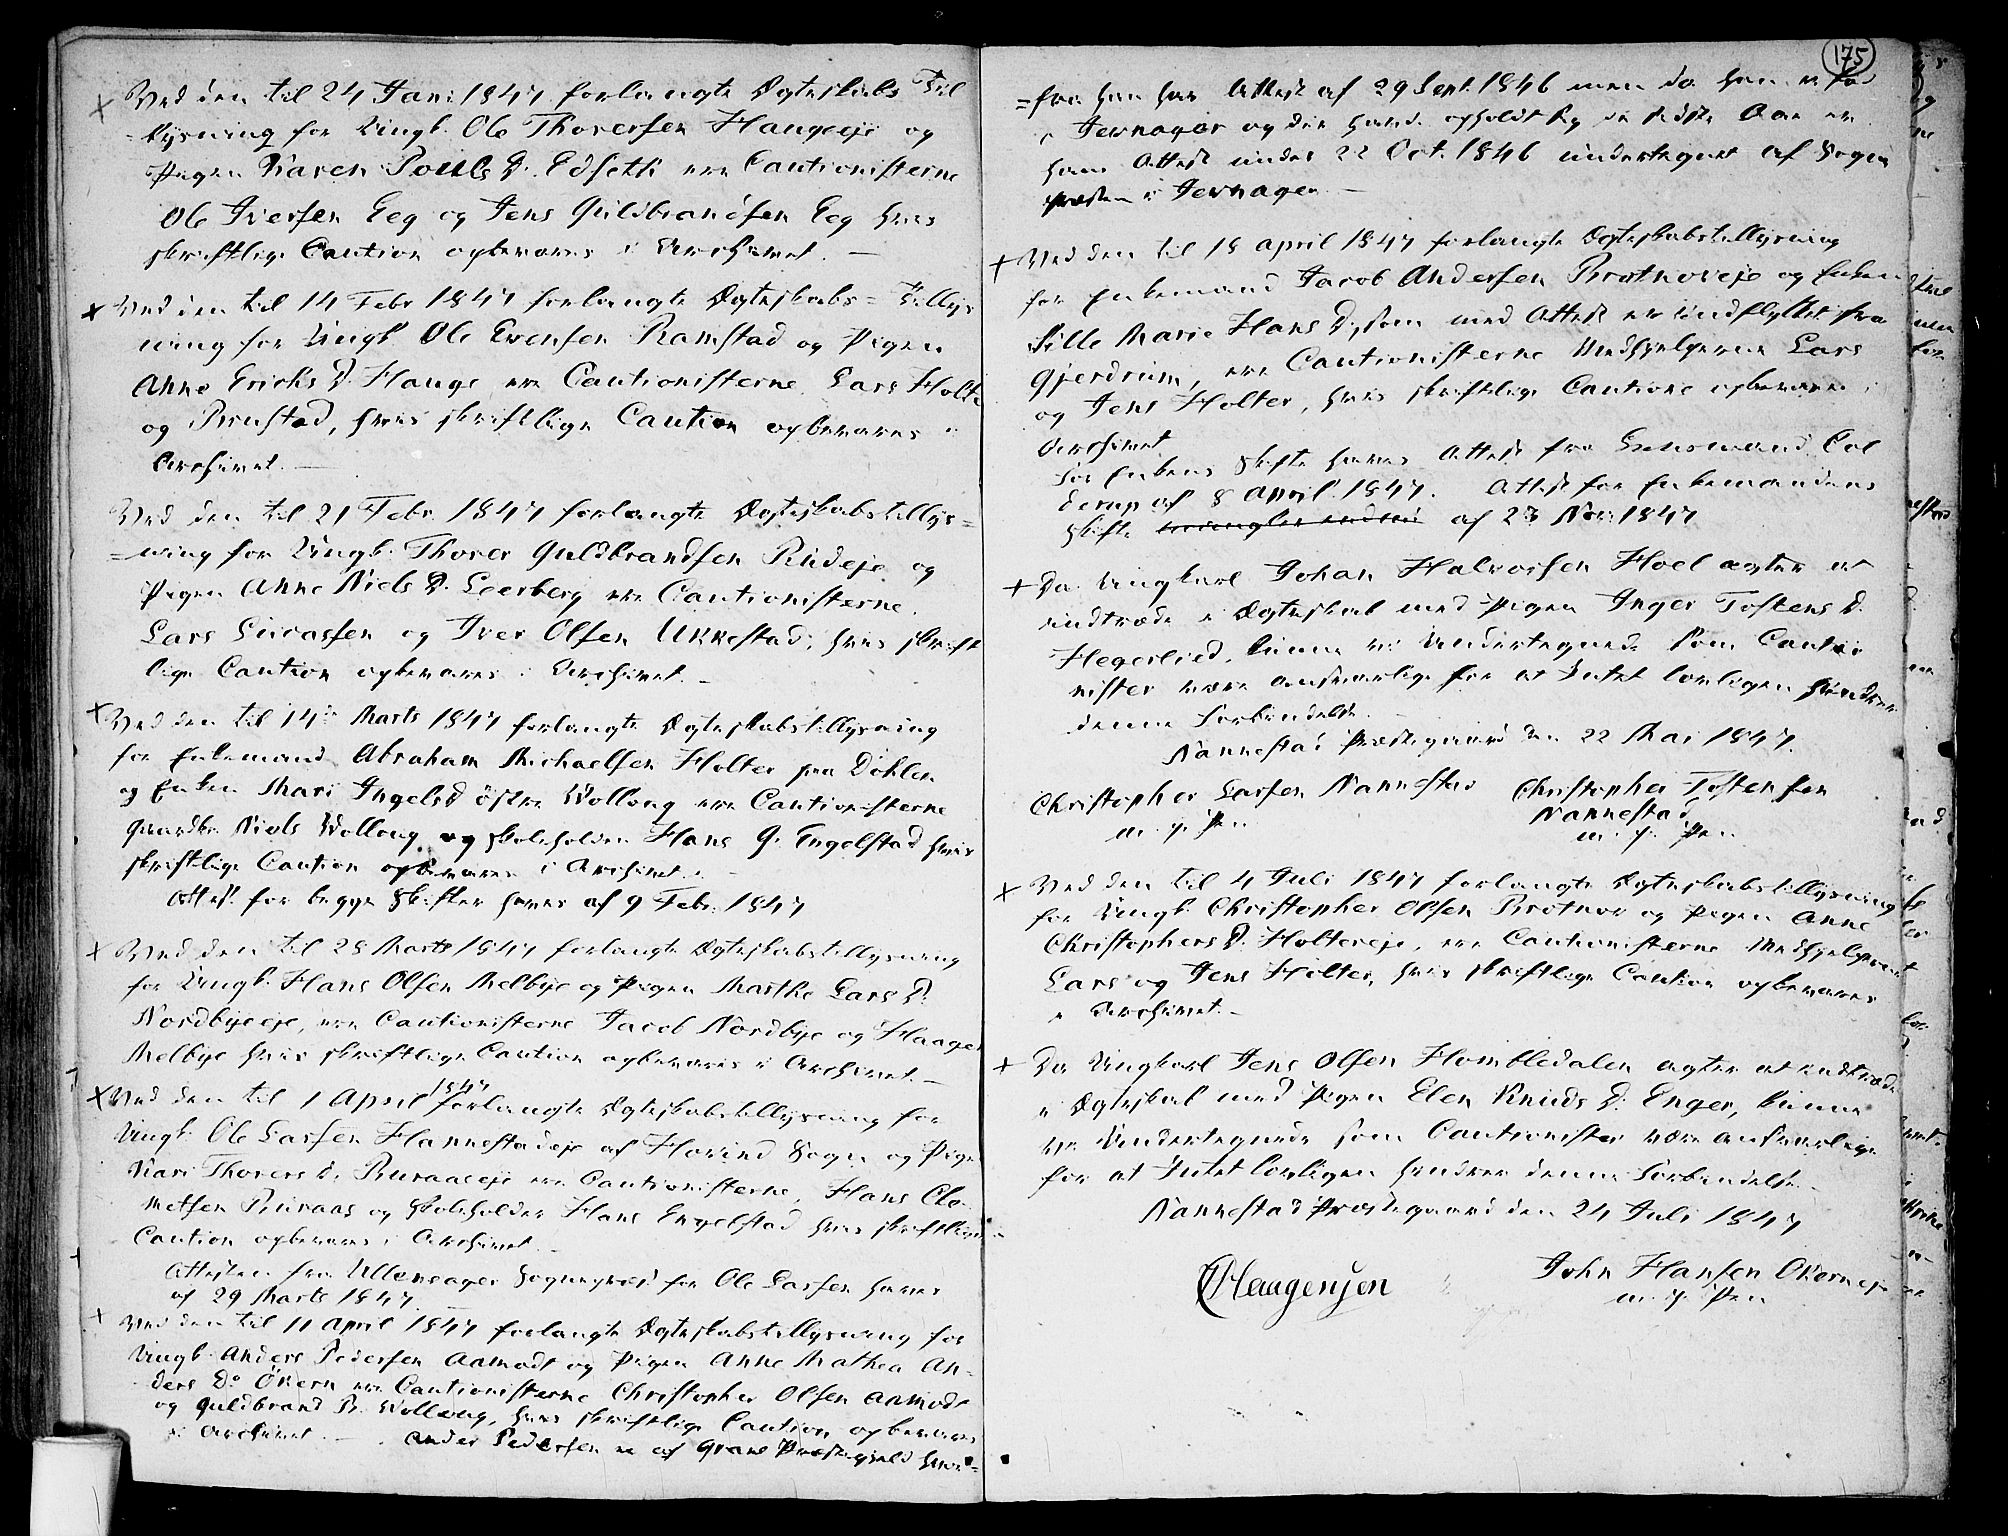 Ved den til 24 Jan: 1847 forlangte Ægteskabs Til
lysning for Ungk. Ole Thoresen Haugeeje og
Pigen Karen Pouls D. Edseth ere Cautionisterne
Ole Iversen Eeg og Jens Guldbrandsen Eeg hvis
skriftlige Caution opbevares i Archivet. —
Ved den til 14 Febr 1847 forlangte Ægteskabs= Tillys
ning for Ungk Ole Evensen Ramstad og Pigen
Anne Ericks D. Hauge ere Cautionisterne Lars Holte
og Brustad, hvis skriftlige Caution opbevares i
Archivet. —
Ved den til 21 Febr 1847 forlangte Ægteskabstillys=
=ning for Ungk. Thorer Guldbrandsen Rudeje og
Pigen Anne Niels D. Leerberg ere Cautionisterne
Lars Lucassen og Iver Olsen Ukkestad, hvis skrift
lige Caution opbevares i Archivet. —
Ved den til 14de Marts 1847 forlangte Ægteskabstillysning
for Enkemand Abraham Michaelsen Holter paa Döhlen
og Enken Mari Ingelsd östre Wollaug ere Cautionisterne
Gaardbr. Niels Wollaug og Skoleholder Hans G. Engelstad hvis
skriftlige Caution opbevares i Archivet. —
Attest for begge Skifter haves af 9 Febr. 1847
Ved den til 28 Marts 1847 forlangte Ægteskabstillysning
for Ungk. Hans Olsen Melbye og Pigen Marthe Lars D.
Nordbyeeje, ere Cautionisterne Jacob Nordbye og Haagen
Melbye hvis skriftlige Caution opbevares i Archivet. —
1847
Ved den til 1 April forlangte Ægteskabstillysning for
Ungk. Ole Larsen Hannestadeje af Hovind Sogn og Pigen
Kari Thorers D. Buraaseje ere Cautionisterne, Hans Cle
metsen Buraas og Skoleholder Hans Engelstad hvis skriftlige
Caution opbevares i Archivet. —
Attesten fra Ullensager Sognepræst for Ole Larsen haves
af 29 Marts 1847
Ved den til 11 April 1847 forlangte Ægteskabstillysning for
Ungk. Anders Pedersen Aamodt og Pigen Anne Mathea An=
ders D. Ökern ere Cautionisterne Christopher Olsen Aamodt
og Guldbrand P. Wollaug, hvis skriftlige Caution opbevares
i Archivet. — Anders Pedersen er af Grans Præstegjeld hvor=
175
=fra han har Attest af 29 Sept. 1846 men da han er fød
i Jevnager og der havde opholdt sig de sidste Aar er
hans Attest under 22 Oct. 1846 undertegnet af Sogne
præsten i Jevnager —
Ved den til 18 April 1847 forlangte Ægteskabstillysning
for Enkemand Jacob Andersen Brotnoveje og Enken
Sille Marie Hans D, som med Attest er indflyttet fra
Gjerdrum, ere Cautionisterne Medhjelperne Lars
og Jens Holter, hvis skriftlige Caution opbevares i
Archivet
For Enkens Skifte haves Attest fra Lensmand Col
derup af 8 April 1847. Attest for Enkemandens
Skifte af 23 Nov: 1847
Da Ungkarl Johan Halvorsen Hoel agter at
indtræde i Ægteskab med Pigen Inger Tostens D.
Hegerlied, kunne vi Undertegnede som Cautio
nister være ansvarlige for at Intet lovligen hindrer
denne Forbindelse. —
Nannestad Præstegaard den 22 Mai 1847.
Christopher Larsen Nannestad Christopher Tostensen
Nannestad
m. p. Pen m. p. Pen
Ved den til 4 Juli 1847 forlangte Ægteskabstillysning
for Ungk. Christopher Olsen Brotnov og Pigen Anne
Christophers D. Holtereje, ere Cautionisterne Medhjelperne
Lars og Jens Holter, hvis skriftlige Caution opbevares
i Archivet. —
Da Ungkarl Jens Olsen Hombledalen agter at indtræde
i Ægteskab med Pigen Elen Knuds D. Enger, kunne
vi Undertegnede som Cautionister være ansvarlige
for at Intet lovligen hindrer denne Forbindelse. —
Nannestad Præstegaard den 24 Juli 1847
Haagensen John Hansen Økerneje
m. p. Pen